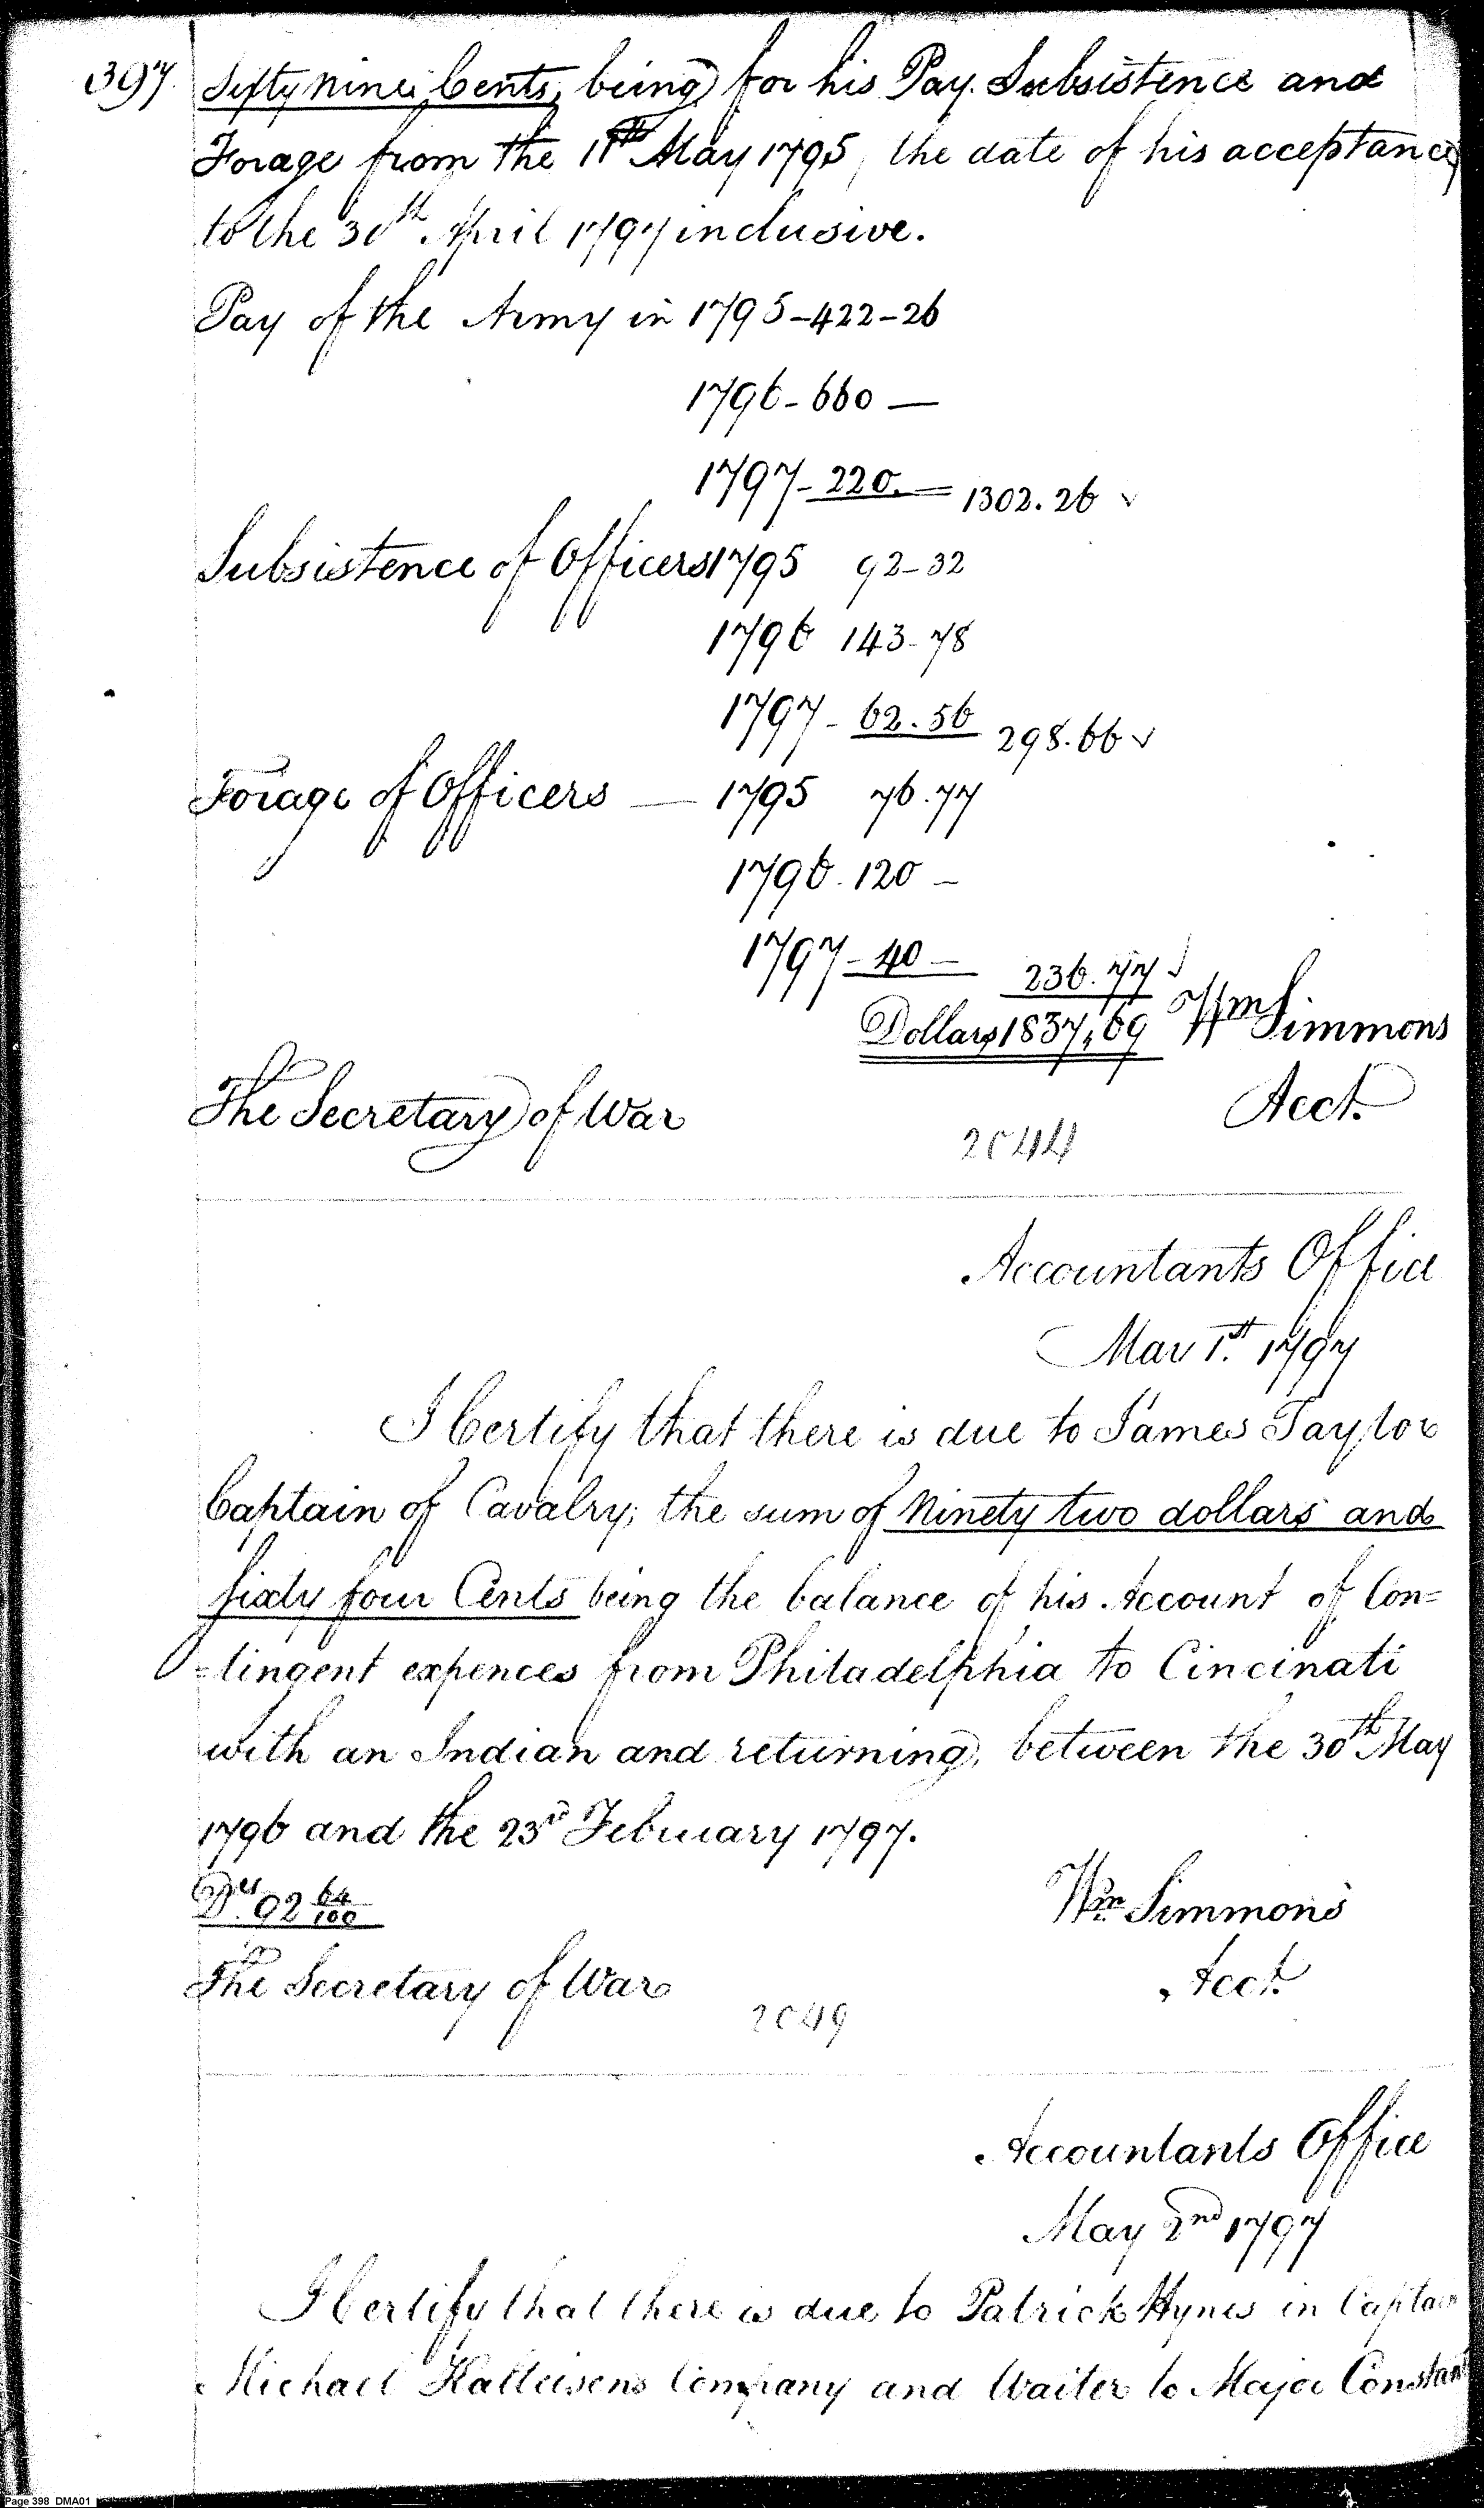 397. Sixty nine Cents, being for his Pay. Subsistence and
Forage from the 11th May 1795, the date of his acceptance
to the 30th April 1797 inclusive.
Pay of the Army in 1795-422-26
1796-660 —
1797-220. — 1302.26 ✓
Subsistence of Officers 1795 92-32
1796 143-78
1797-62.56 298.66 ✓
Forage of Officers — 1795 76.77
1796. 120 —
1797-40 — 236.77 ✓
Dollars 1837,69 Wm Simmons
The Secretary of War Acct.
2044
Accountants Office
May 1st. 1797
I Certify that there is due to James Taylor
Captain of Cavalry; the sum of Ninety two dollars and
sixty four Cents being the balance of his Account of Con=
=tingent expences from Philadelphia to Cincinati
with an Indian and returning, between the 30th May
1796 and the 23rd February 1797.
Drs. 92 64/100 Wm Simmons
The Secretary of War Acct.
2049
Accountants Office
May 2nd 1797
I Certify that there is due to Patrick Hynes in Captain
Michael Kalteisens Company and Waiter to Major Constant
Page 398 DMA01